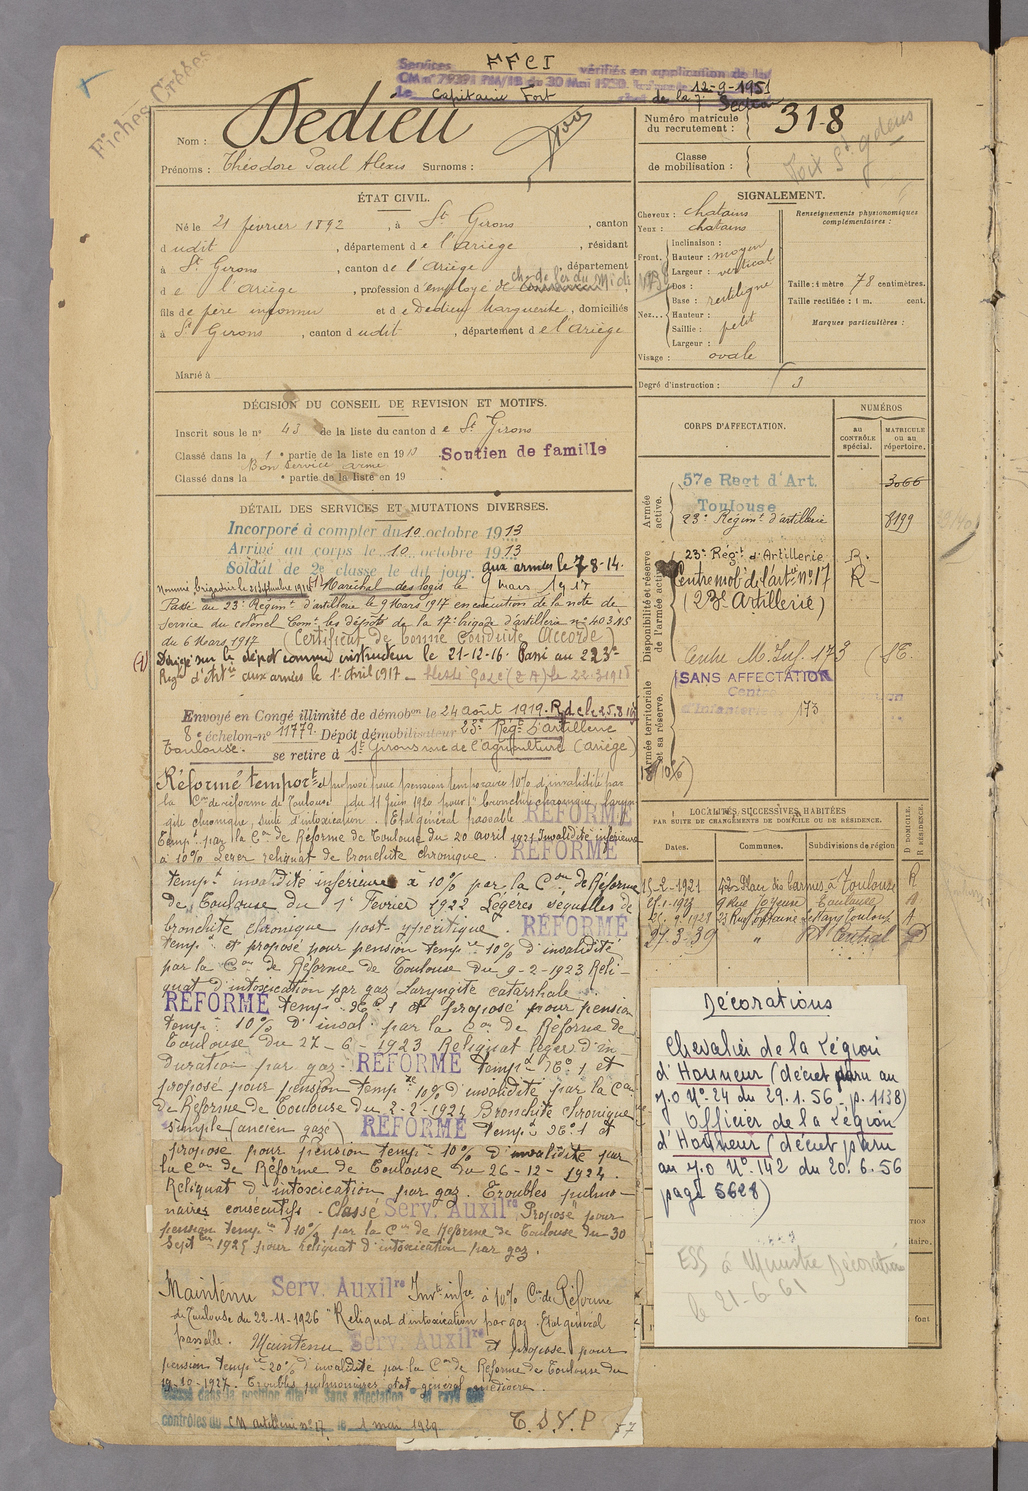 Fiches Créées
FFCI
Services vérifiés en application de la
CM n° 7939 PM/1B du 30 Mai 1950
Capitaine Fort
de la 7
12-9-1951
Nom : Dedieu
Prénoms : Théodore Paul Alexis Surnoms :
Numéro matricule du recrutement : 318
Classe de mobilisation :
ÉTAT CIVIL.
Né le 21 février 1892, à St Girons, canton
dudit, département de l'ariège, résidant
à St Girons, canton de l'ariège, département
de l'ariège, profession d'employé de ch. de fer du Midi
fils de père inconnu et de Dedieu Marguerite, domiciliés
à St Girons, canton dudit, département de l'ariège
Marié à
SIGNALEMENT.
Cheveux : chatains
Yeux : chatains
Front. Inclinaison :
Hauteur : moyen
Largeur : vertical
Nez... Dos :
Base : rectiligne
Hauteur :
Saillie : petit
Largeur :
Visage : ovale
Renseignements physionomiques complémentaires :
Taille : 1 mètre 78 centimètres.
Taille rectifiée : 1 m. cent.
Marques particulières :
Degré d'instruction : 3
DÉCISION DU CONSEIL DE REVISION ET MOTIFS.
Inscrit sous le n° 43 de la liste du canton de St Girons
Classé dans la 1e partie de la liste en 1913 Soutien de famille
Bon service armé
Classé dans la e partie de la liste en 19
DÉTAIL DES SERVICES ET MUTATIONS DIVERSES.
Incorporé à compter du 10 octobre 1913
Arrivé au corps le 10 octobre 1913
Soldat de 2e classe le dit jour. aux armées le 7-8-14.
Nommé brigadier le 21 septembre 1914 Maréchal des logis le 9 mars 1917
Passé au 23e Régimt d'artillerie le 9 Mars 1917 en exécution de la note de
service du colonel Comt les dépôts de la 17e brigade d'artillerie n° 403 NS
du 6 Mars 1917 (Certificat de bonne conduite Accordé)
Dirigé sur le dépôt comme instructeur le 21-12-16. Passé au 223e
Regt d'Artie aux armées le 1er Avril 1917 -
Envoyé en Congé illimité de démobon le 24 août 1919. R.d.c le 25.8.19
8e échelon n° 11779. Dépôt démobilisateur 23e Régt d'artillerie
Toulouse. se retire à St Girons rue de l'agriculture (ariège)
Réformé tempore et proposé pour pension temporaire 10% d'invalidité par
la Con de réforme de Toulouse du 11 Juin 1920 pour bronchite chronique laryn
gite chronique, suite d'intoxication. Etat général passable RÉFORMÉ
Tempt par la Con de Réforme de Toulouse du 20 avril 1921 Invalidité inférieure
à 10% Léger reliquat de bronchite chronique. RÉFORMÉ
tempt invalidité inférieure à 10% par la Con de Réforme
de Toulouse du 1er Fevrier 1922 Légères séquelles de
bronchite chronique post-ypéritique. RÉFORMÉ
tempt et proposé pour pension tempre 10% d'invalidité
par la Con de Réforme de Toulouse du 9-2-1923 Reli-
quat d'intoxication par gaz Laryngite catarrhale.
RÉFORMÉ tempt No 1 et proposé pour pension
tempre 10% d'inval. par la Con de Réforme de
Toulouse du 27-6-1923 Reliquat léger d'in-
duration par gaz. RÉFORMÉ tempt No 1 et
proposé pour pension tempre 10% d'invalidité par la Con
de Réforme de Toulouse du 2-2-1924 Bronchite chronique
simple (ancien gazé) RÉFORMÉ tempt No 1 et
proposé pour pension tempre 10% d'invalidité par
la Con de Réforme de Toulouse du 26-12-1924.
Reliquat d'intoxication par gaz. Troubles pulmo-
naires consécutifs. Classé Serv. Auxilre Proposé pour
pension tempre 10% par la Con de Réforme de Toulouse du 30
Septbre 1925 pour reliquat d'intoxication par gaz.
Maintenu Serv. Auxilre Invté infre à 10% Con de Réforme
de Toulouse du 22-11-1926 "Reliquat d'intoxication par gaz. Etat général
passable. Maintenu Serv. Auxilre et proposé pour
pension tempre 20% d'invalidité par la Con de Réforme de Toulouse du
19-10-1927. Troubles pulmonaires état général médiocre.
Classé dans la position dite "sans affectation" et rayé des
contrôles du CM artillerie n° 17 le 1 mai 1929
57
CORPS D'AFFECTATION.
NUMÉROS
au CONTRÔLE spécial.
MATRICULE ou au répertoire.
Armée active.
57e Regt d'Art. 3066
Toulouse
23e Régimt d'artillerie 8199
Disponibilité et réserve de l'armée active
23e Régt d'Artillerie R.
Centre mob de l'arte n° 17 R-
(23e Artillerie)
Centre M. Inf. 173
SANS AFFECTATION
d'Infanterie 173
Armée territoriale et sa réserve.
LOCALITÉS SUCCESSIVES HABITÉES
PAR SUITE DE CHANGEMENTS DE DOMICILE OU DE RÉSIDENCE.
Dates.
Communes.
Subdivisions de région
D DOMICILE. R RÉSIDENCE.
15-2-1921 Toulouse R
9 Rue Joyeuse Toulouse
27-3-39 "
Décorations
Chevalier de la Légion
d'Honneur (décret paru au
J.O N° 24 du 29.1.56 p. 1138)
Officier de la Légion
d'Honneur (décret paru
au J.O N° 142 du 20.6.56
page 5628)
ESS à Ministre Décoration
le 21-6-61